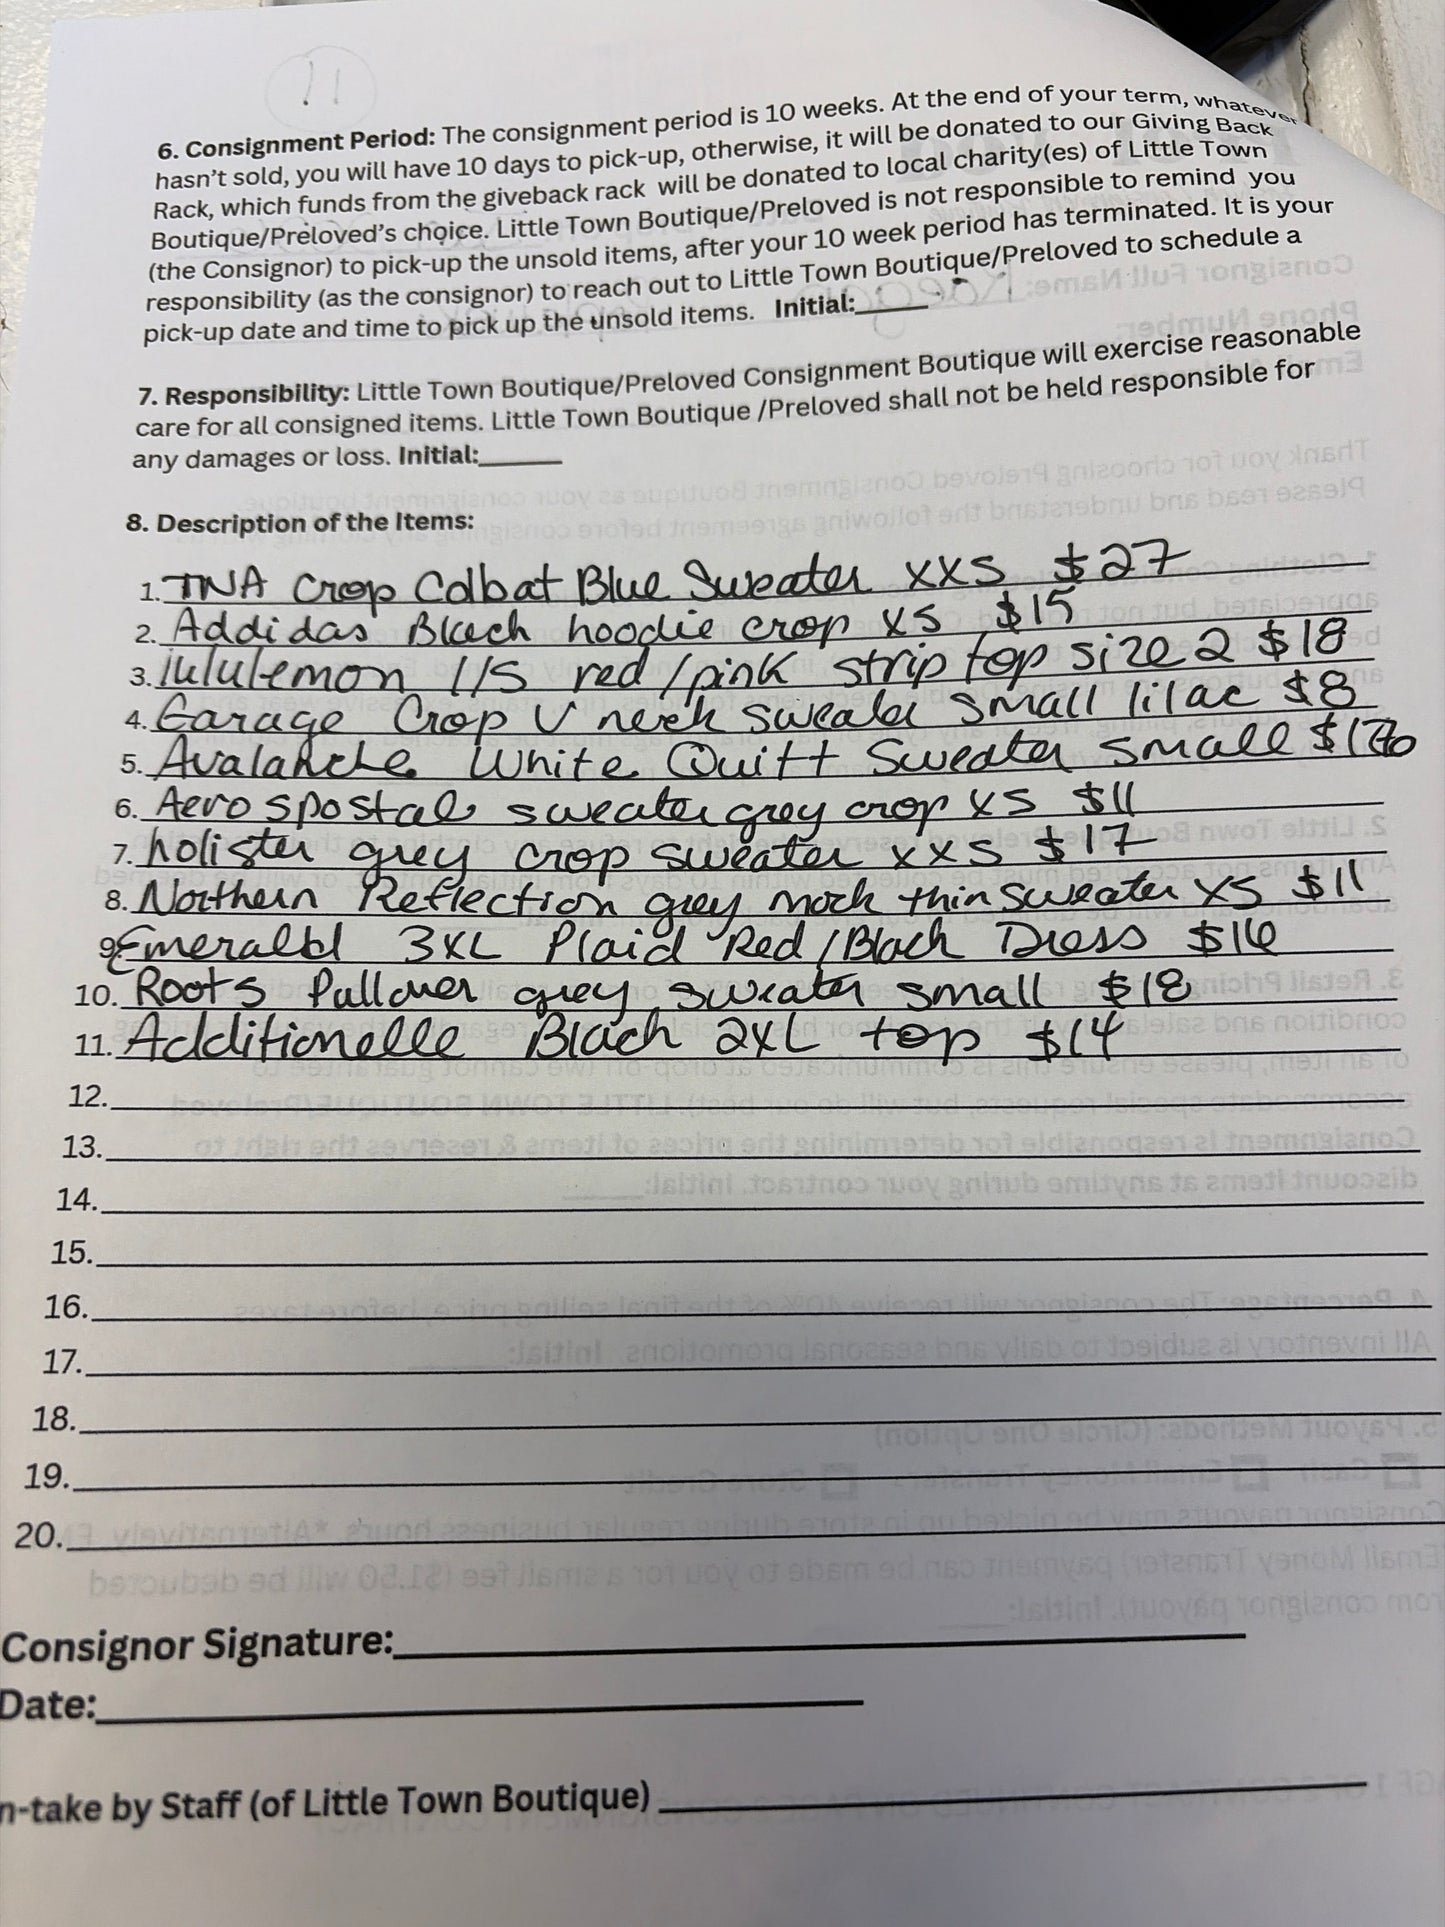 11
6. Consignment Period: The consignment period is 10 weeks. At the end of your term, whatever
hasn't sold, you will have 10 days to pick-up, otherwise, it will be donated to our Giving Back
Rack, which funds from the giveback rack will be donated to local charity(es) of Little Town
Boutique/Preloved's choice. Little Town Boutique/Preloved is not responsible to remind you
(the Consignor) to pick-up the unsold items, after your 10 week period has terminated. It is your
responsibility (as the consignor) to reach out to Little Town Boutique/Preloved to schedule a
pick-up date and time to pick up the unsold items. Initial:
7. Responsibility: Little Town Boutique/Preloved Consignment Boutique will exercise reasonable
care for all consigned items. Little Town Boutique /Preloved shall not be held responsible for
any damages or loss. Initial:
8. Description of the Items:
1. TNA Crop Colbat Blue Sweater XXS $27
2. Addidas Black hoodie crop XS $15
3. lululemon l/s red/pink strip top size 2 $18
4. Garage Crop V neck sweater small lilac $8
5. Avalanche White Quilt Sweater small
6. Aerospostale sweater grey crop XS $11
7. holister grey crop sweater xxs $17
8. Northern Reflection grey mock thin sweater XS $11
9. Emerald 3XL Plaid Red/Black Dress $16
10. Roots Pullover grey sweater small $18
11. Additionelle Black 2XL top $14
12.
13.
14.
15.
16.
17.
18.
19.
20.
Consignor Signature:
Date:
n-take by Staff (of Little Town Boutique)